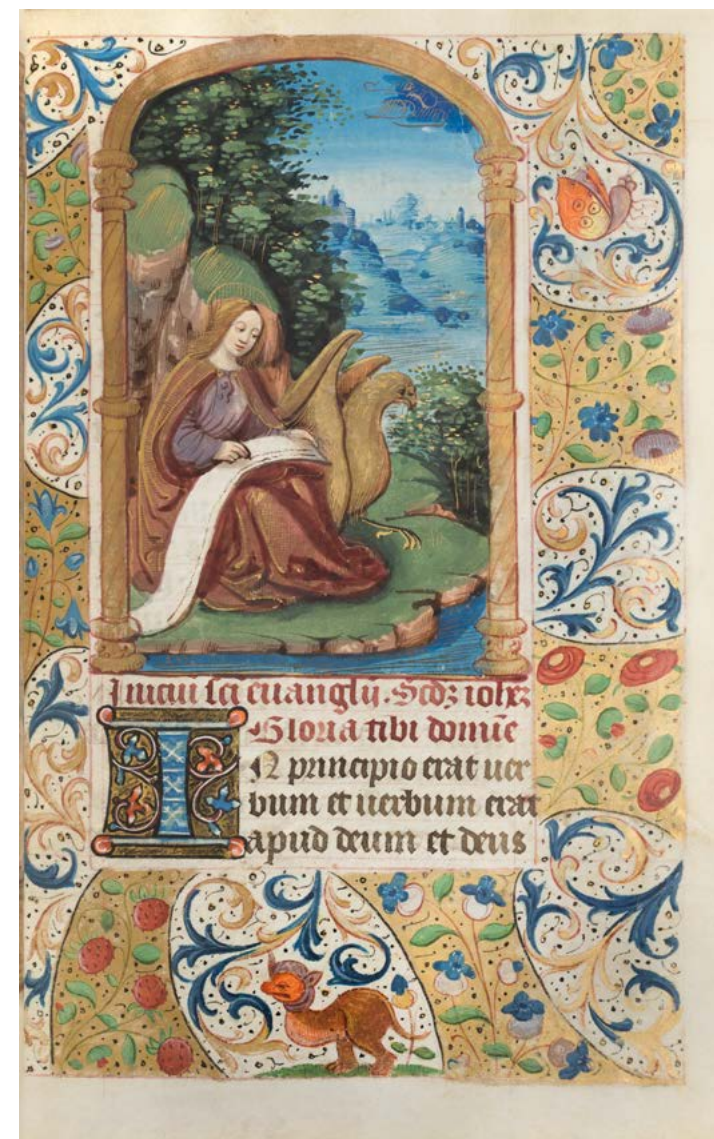 Iniciu sci euanglij. Scdȝ iohȝ
Gloria tibi domīe
IN principio erat uer
bum et uerbum erat
apud deum et deus